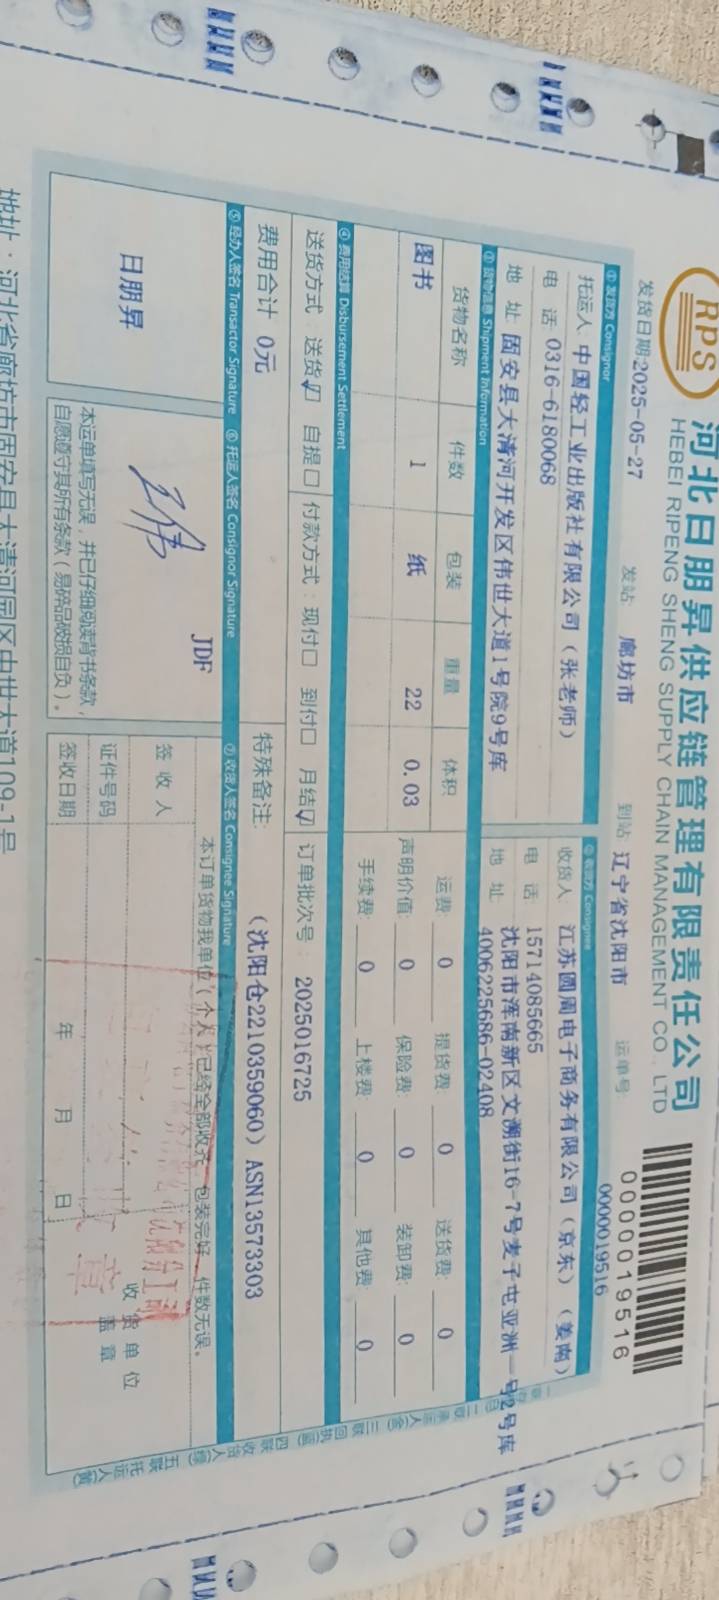 RPS
河北日朋昇供应链管理有限责任公司
HEBEI RIPENG SHENG SUPPLY CHAIN MANAGEMENT CO., LTD
0000019516
发货日期:2025-05-27 发站 廊坊市 到站 辽宁省沈阳市 运单号 0000019516
① 发货方 Consignor
托运人 中国轻工业出版社有限公司（张老师）
电 话 0316-6180068
地 址 固安县大清河开发区伟世大道1号院9号库
② 收货方 Consignee
收货人 江苏圆周电子商务有限公司（京东）（姜南）
电 话 15714085665
地 址 沈阳市浑南新区文溯街16-7号麦子屯亚洲一号2号库
4006225686-02408
③ 货物信息 Shipment Information
货物名称 件数 包装 重量 体积
图书 1 纸 22 0.03
运费: 0 提货费: 0 送货费: 0
声明价值: 0 保险费: 0 装卸费: 0
手续费: 0 上楼费: 0 其他费: 0
④ 费用结算 Disbursement Settlement
送货方式: 送货☑ 自提□ 付款方式: 现付□ 到付□ 月结☑ 订单批次号: 2025016725
费用合计 0元 特殊备注: （沈阳仓2210359060）ASN13573303
⑤ 经办人签名 Transactor Signature ⑥ 托运人签名 Consignor Signature ⑦ 收货人签名 Consignee Signature
日朋昇
JDF
本运单填写无误，并已仔细阅读背书条款，
自愿遵守其所有条款（易碎品破损自负）。
本订单货物我单位（个人）已经全部收齐，包装完好，件数无误。
签 收 人
证件号码
签收日期 年 月 日
收 货 单 位
盖 章
地址：河北省廊坊市固安县大清河园区中世大道109-1号